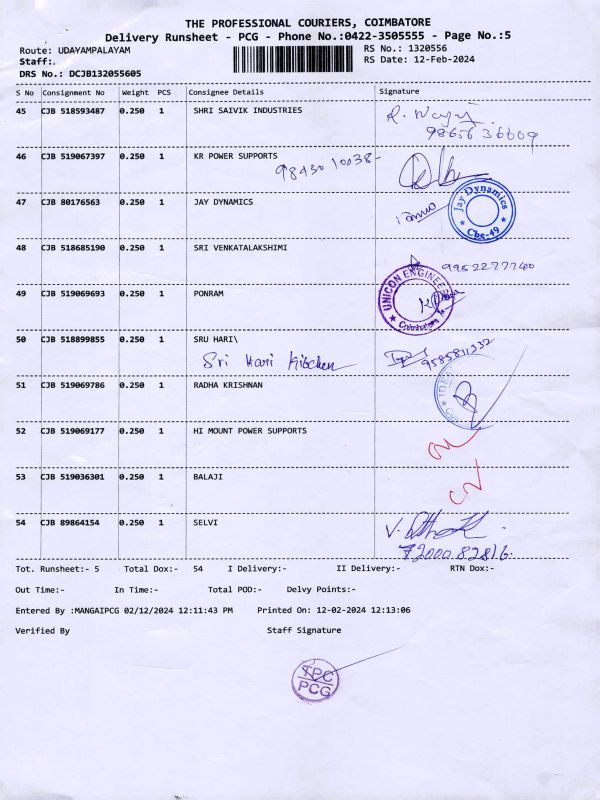 THE PROFESSIONAL COURIERS, COIMBATORE
Delivery Runsheet - PCG - Phone No.:0422-3505555 - Page No.:5
Route: UDAYAMPALAYAM
RS No.: 1320556
Staff:.
RS Date: 12-Feb-2024
DRS No.: DCJB132055605
S No Consignment No Weight PCS Consignee Details Signature
45 CJB 518593487 0.250 1 SHRI SAIVIK INDUSTRIES
46 CJB 519067397 0.250 1 KR POWER SUPPORTS
98430 10038-
47 CJB 80176563 0.250 1 JAY DYNAMICS
Jay Dynamics
Cbe-49
48 CJB 518685190 0.250 1 SRI VENKATALAKSHIMI
49 CJB 519069693 0.250 1 PONRAM
UNICON ENGINEE
Coimbatore
50 CJB 518899855 0.250 1 SRU HARI\
Sri Hari Kitchen
9585811332
51 CJB 519069786 0.250 1 RADHA KRISHNAN
52 CJB 519069177 0.250 1 HI MOUNT POWER SUPPORTS
53 CJB 519036301 0.250 1 BALAJI
54 CJB 89864154 0.250 1 SELVI
Tot. Runsheet:- 5 Total Dox:- 54 I Delivery:- II Delivery:- RTN Dox:-
Out Time:- In Time:- Total POD:- Delvy Points:-
Entered By :MANGAIPCG 02/12/2024 12:11:43 PM Printed On: 12-02-2024 12:13:06
Verified By Staff Signature
TPC
PCG